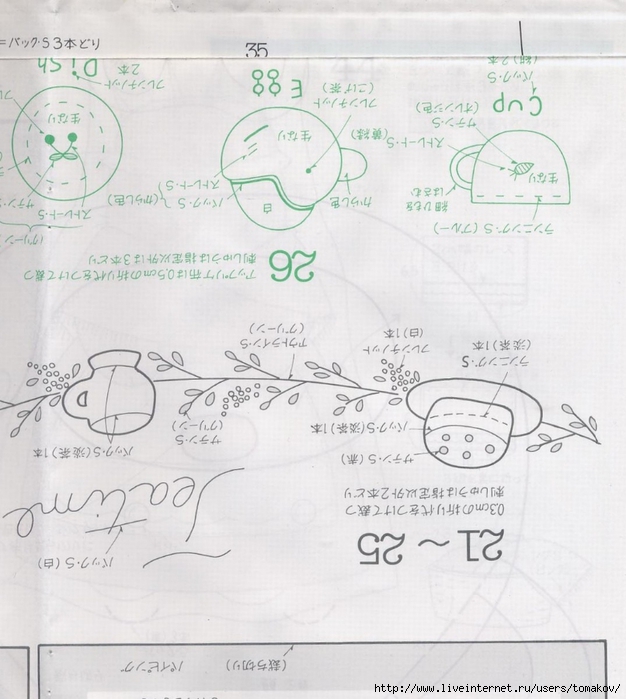 =バック・S3本どり
35
(裁ち切り)
パイピング
21～25
0.3cmの折り代をつけて裁つ
刺しゅうは指定以外2本どり
バック・S(白)
Teatime
サテン・S(茶)
バック・S(淡茶)1本
ランニング・S
(淡茶)1本
フレンチノット
(白)1本
サテン・S
(グリーン)
アウトライン・S
(グリーン)
バック・S(淡茶)1本
26
アップリケ布は0.5cmの折り代をつけて裁つ
刺しゅうは指定以外は3本どり
ランニング・S(ブルー)
細ひもを
はさむ
生なり
ストレート・S
サテン・S
(オレンジ色)
Cup
バック・S
(紺)2本
白
からし色
バック・S
(からし色)
ストレート・S
(黄緑)
生なり
フレンチノット
(こげ茶)
Egg
(グリーン)
ストレート・S
生なり
フレンチノット
2本
Dish
http://www.liveinternet.ru/users/tomakov/